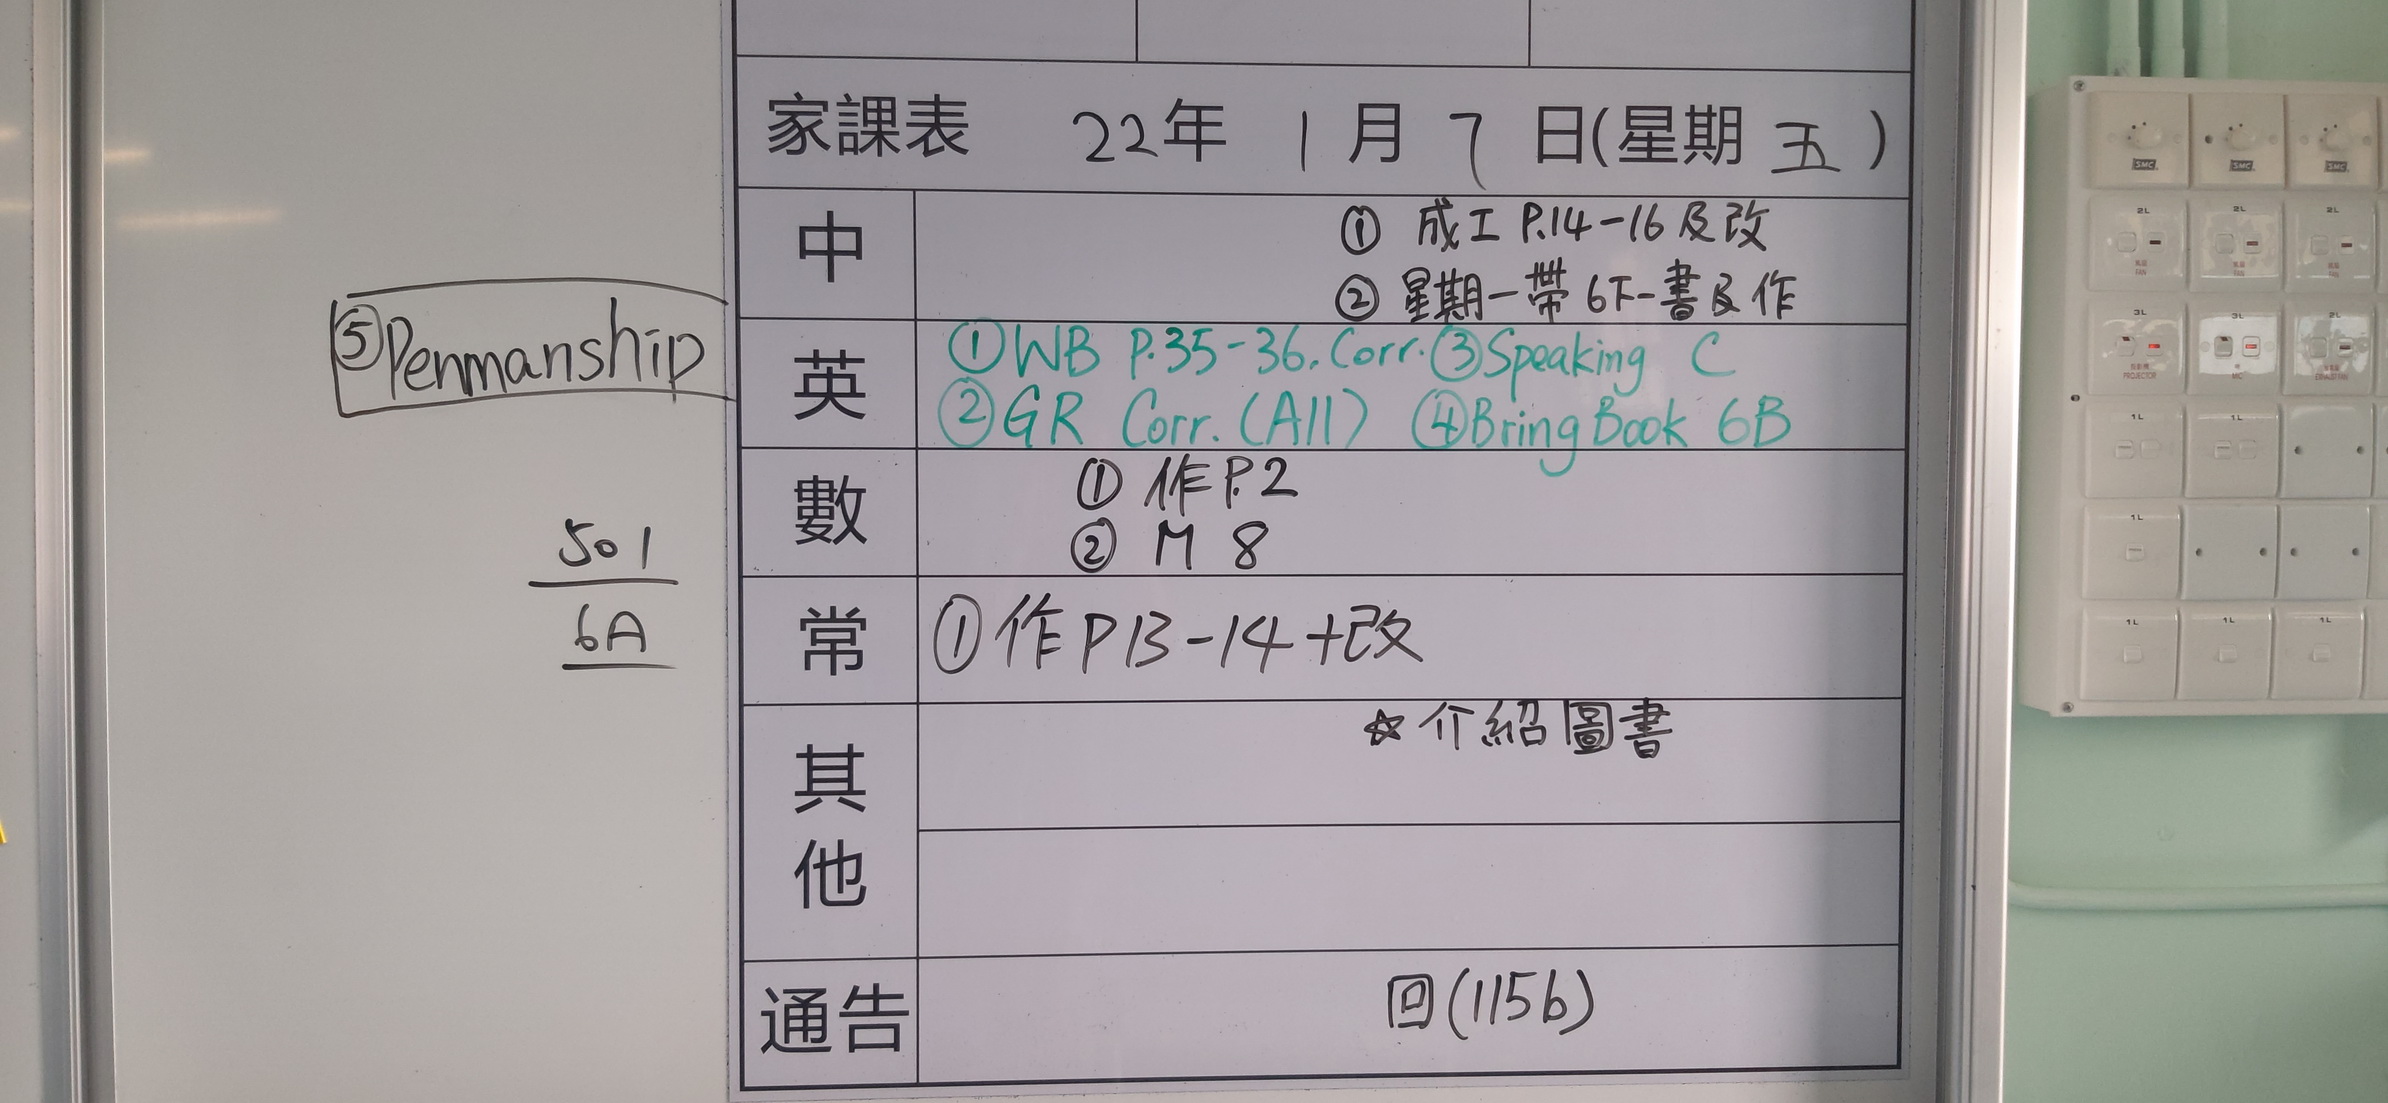 家課表 22年 1月7日(星期五)
中
① 成工 P.14-16及改
② 星期一帶6下一書及作
英
①WB P.35-36.Corr.③Speaking C
②GR Corr.(All) ④Bring Book 6B
⑤Penmanship
數
① 作P.2
② M 8
501
6A
常
①作P13-14+改
其他
☆介紹圖書
通告
回(115b)
SMC SMC SMC
2L 2L 2L
FAN FAN FAN
3L 3L 2L
PROJECTOR MIC EXHAUST FAN
1L 1L
1L
1L 1L 1L